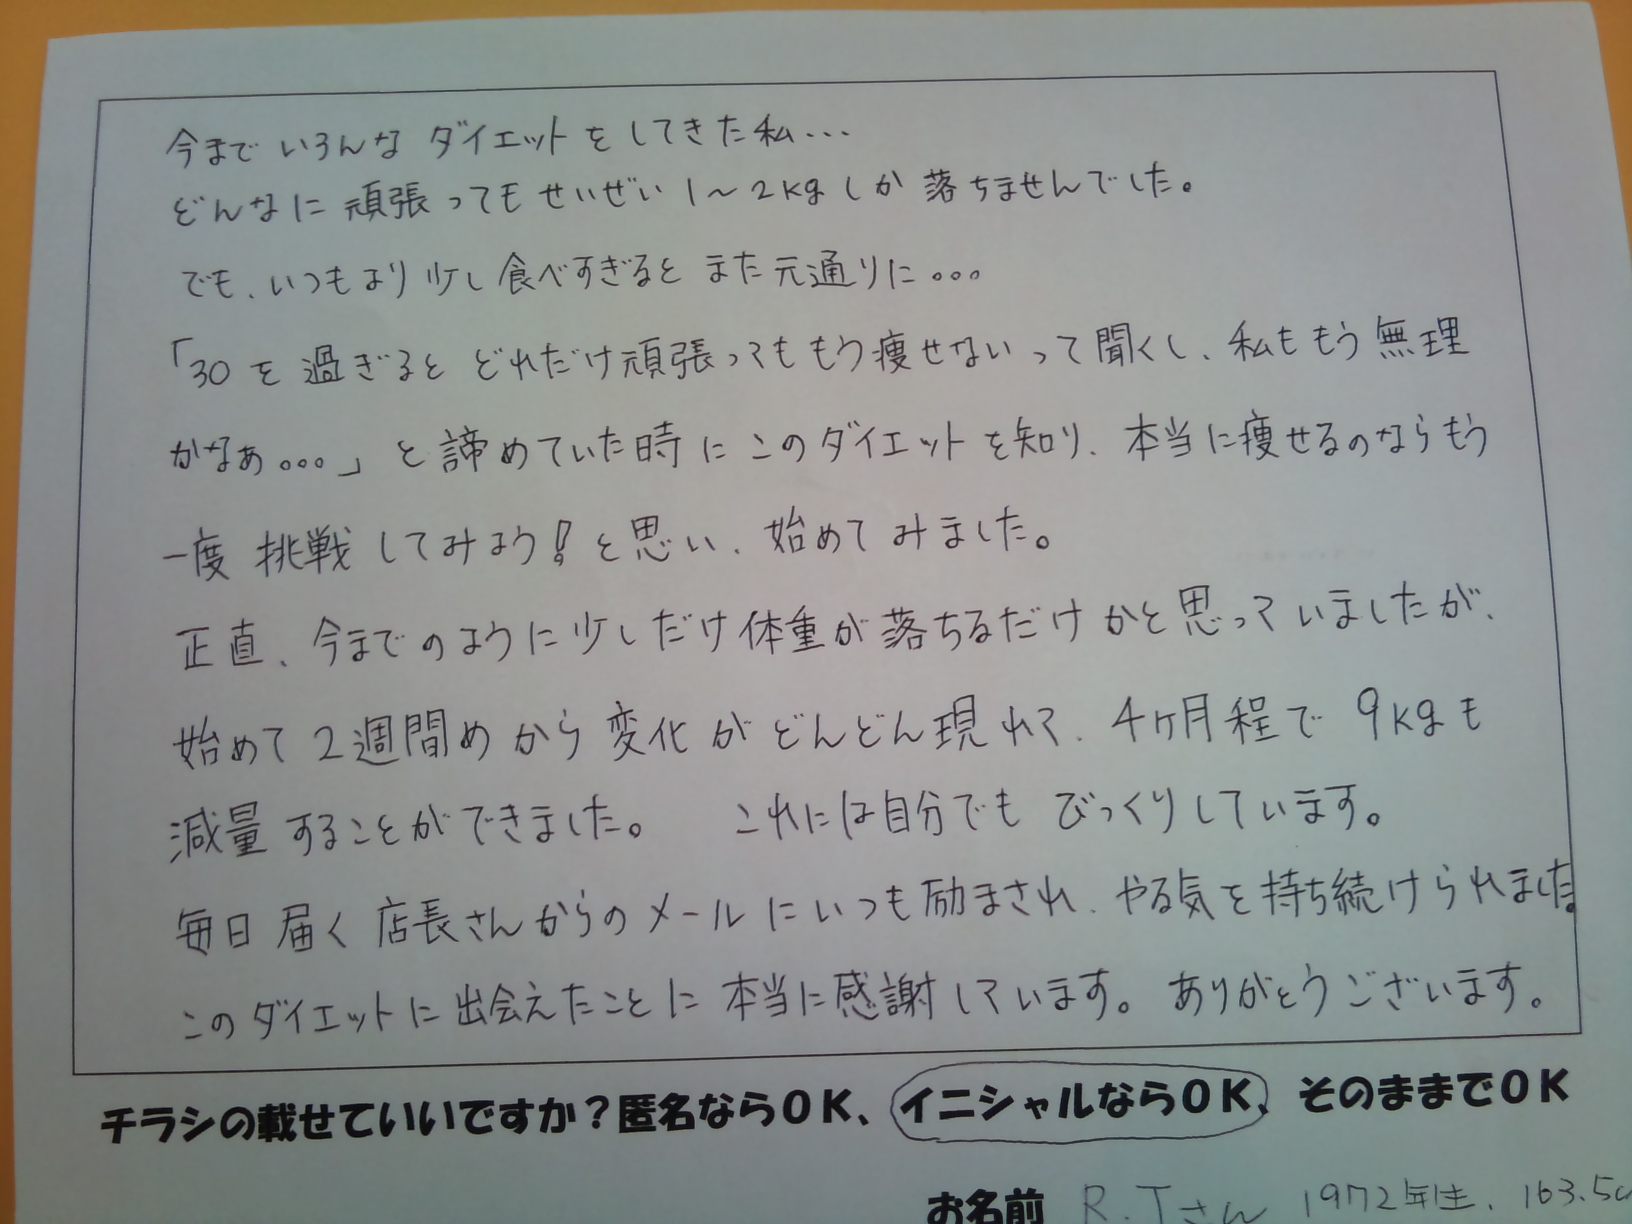 今まで いろんな ダイエットをしてきた私...
どんなに 頑張っても せいぜい 1～2kgしか 落ちませんでした。
でも、いつもより 少し 食べすぎると また 元通りに。。。
「30を過ぎると どれだけ頑張ってももう痩せないって聞くし、私ももう無理
かなぁ。。。」と諦めていた時にこのダイエットを知り、本当に痩せるのならもう
一度 挑戦してみよう!と思い、始めてみました。
正直、今までのように少しだけ体重が落ちるだけかと思っていましたが、
始めて2週間めから変化がどんどん現れて、4ヶ月程で9kgも
減量することができました。 これには自分でも びっくりしています。
毎日届く店長さんからのメールにいつも励まされ、やる気を持ち続けられました。
このダイエットに出会えたことに本当に感謝しています。ありがとうございます。
チラシの載せていいですか？匿名ならＯＫ、イニシャルならＯＫ、そのままでＯＫ
お名前 R.Tさん 1972年生、163.5c